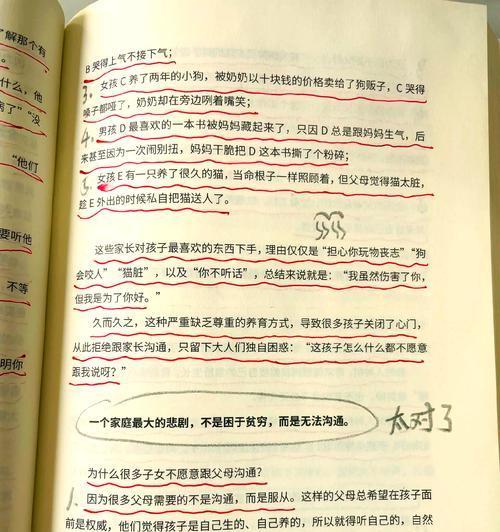 "解那个有
什么，他
病了""没
"他们
要听他
不等
明你
B 哭得上气不接下气；
3. 女孩 C 养了两年的小狗，被奶奶以十块钱的价格卖给了狗贩子，C 哭得
嗓子都哑了，奶奶却在旁边咧着嘴笑；
4. 男孩 D 最喜欢的一本书被妈妈藏起来了，只因 D 总是跟妈妈生气，后
来甚至因为一次闹别扭，妈妈干脆把 D 这本书撕了个粉碎；
5. 女孩 E 有一只养了很久的猫，当命根子一样照顾着，但父母觉得猫太脏，
趁 E 外出的时候私自把猫送人了。
这些家长对孩子最喜欢的东西下手，理由仅仅是"担心你玩物丧志""狗
会咬人""猫脏"，以及"你不听话"，总结来说就是："我虽然伤害了你，
但我是为了你好。"
久而久之，这种严重缺乏尊重的养育方式，导致很多孩子关闭了心门，
从此拒绝跟家长沟通，只留下大人们独自困惑："这孩子怎么什么都不愿意
跟我说呀？"
一个家庭最大的悲剧，不是困于贫穷，而是无法沟通。
太对了
为什么很多子女不愿意跟父母沟通？
1. 因为很多父母需要的不是沟通，而是服从。这样的父母总希望在孩子面
前是权威，他们觉得孩子是自己生的、自己养的，所以就得听自己的，自然